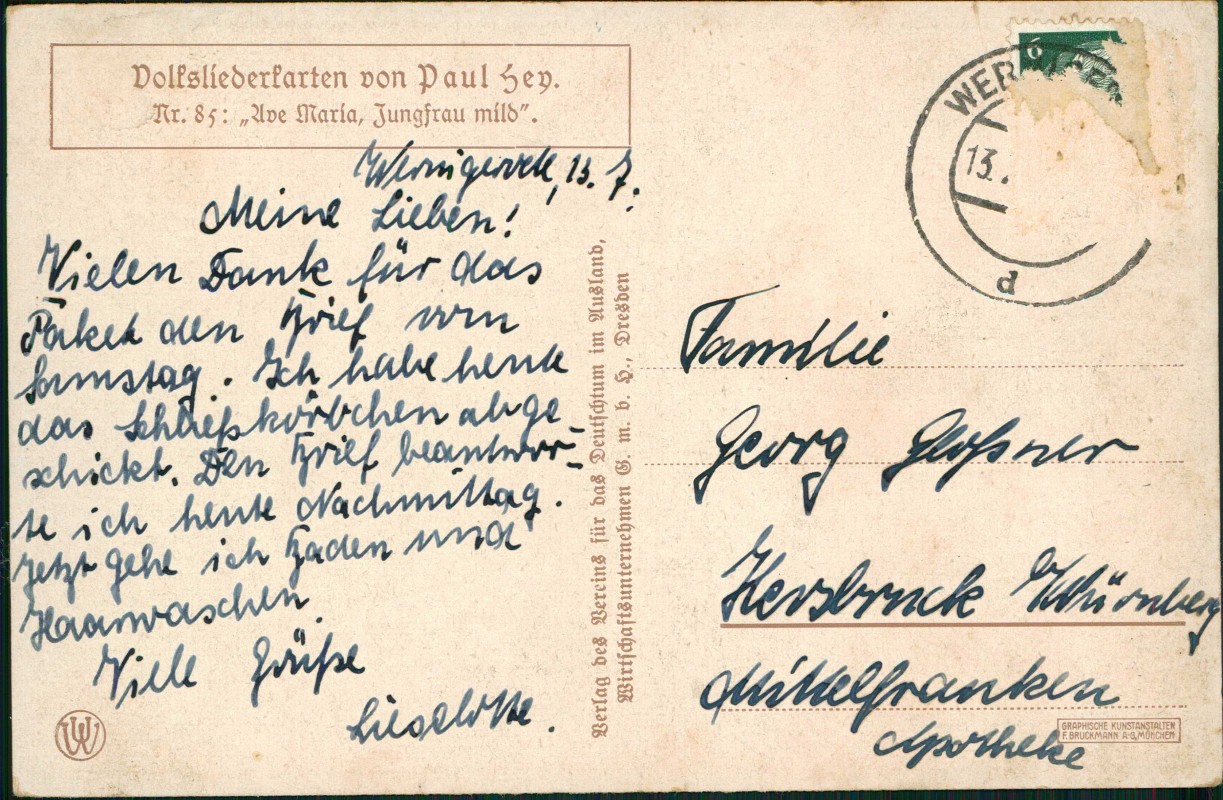 Volksliederkarten von Paul Hey.
Nr. 85: „Ave Maria, Jungfrau mild".
Wernigerode, 13. 7.
Meine Lieben!
Vielen Dank für das
Paket den Brief vom
Samstag. Ich habe heute
das Schließkörbchen abge-
schickt. Den Brief beantwor-
te ich heute Nachmittag.
Jetzt gehe ich Baden und
Haarwaschen
Viele Grüße
Lieselotte.
Verlag des Vereins für das Deutschtum im Ausland,
Wirtschaftsunternehmen G. m. b. H., Dresden
6
WER
13.
d
Familie
Georg Gloßner
Hersbruck b/Nürnberg
Mittelfranken
Apotheke
GRAPHISCHE KUNSTANSTALTEN
F. BRUCKMANN A-G, MÜNCHEN